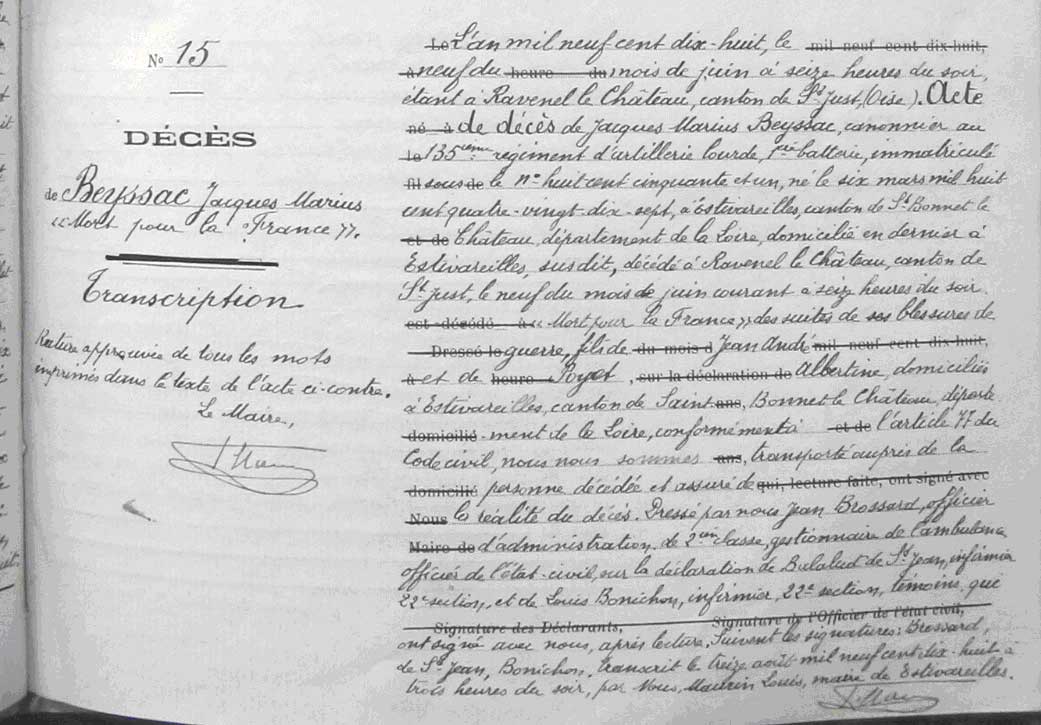 Nº 15
DÉCÈS
de Beyssac Jacques Marius
"Mort pour la France".
Transcription
Rature approuvée de tous les mots
imprimés dans le texte de l'acte ci-contre.
Le Maire,
Le L'an mil neuf cent dix-huit, le mil neuf cent dix-huit,
à neuf du heure du mois de juin à seize heures du soir,
étant à Ravenel le Château, canton de St Just, (Oise). Acte
né à de décès de Jacques Marius Beyssac, canonnier au
le 135ème régiment d'artillerie lourde, 1ère batterie, immatriculé
fil sous de le nº huit cent cinquante et un, né le six mars mil huit
cent quatre-vingt-dix-sept, à Estivareilles, canton de St Bonnet le
et de Château, département de la Loire, domicilié en dernier à
Estivareilles, susdit, décédé à Ravenel le Château, canton de
St Just, le neuf du mois de juin courant à seize heures du soir.
est décédé à "Mort pour la France" des suites de ses blessures de
Dressé le guerre, fils de du mois d Jean André mil neuf cent dix-huit,
à et de heure Poyet, sur la déclaration de Albertine, domiciliés
à Estivareilles, canton de Saint ans, Bonnet le Château, départe
domicilié -ment de la Loire, conformément à et de l'article 77 du
Code civil, nous nous sommes ans, transporté auprès de la
domicilié personne décédée et assuré de qui, lecture faite, ont signé avec
Nous la réalité du décès. Dressé par nous Jean Brossard, officier
Maire de d'administration de 2ème classe, gestionnaire de l'ambulance
officier de l'état-civil, sur la déclaration de de St Jean, infirmier
22e section, et de Louis Bonichon, infirmier, 22e section, témoins, qui
Signature des Déclarants, Signature de l'Officier de l'état civil,
ont signé avec nous, après lecture. Suivent les signatures: Brossard,
de St Jean, Bonichon. Transcrit le treize août mil neuf cent dix-huit à
trois heures du soir, par Nous, Maurin Louis, maire de Estivareilles.